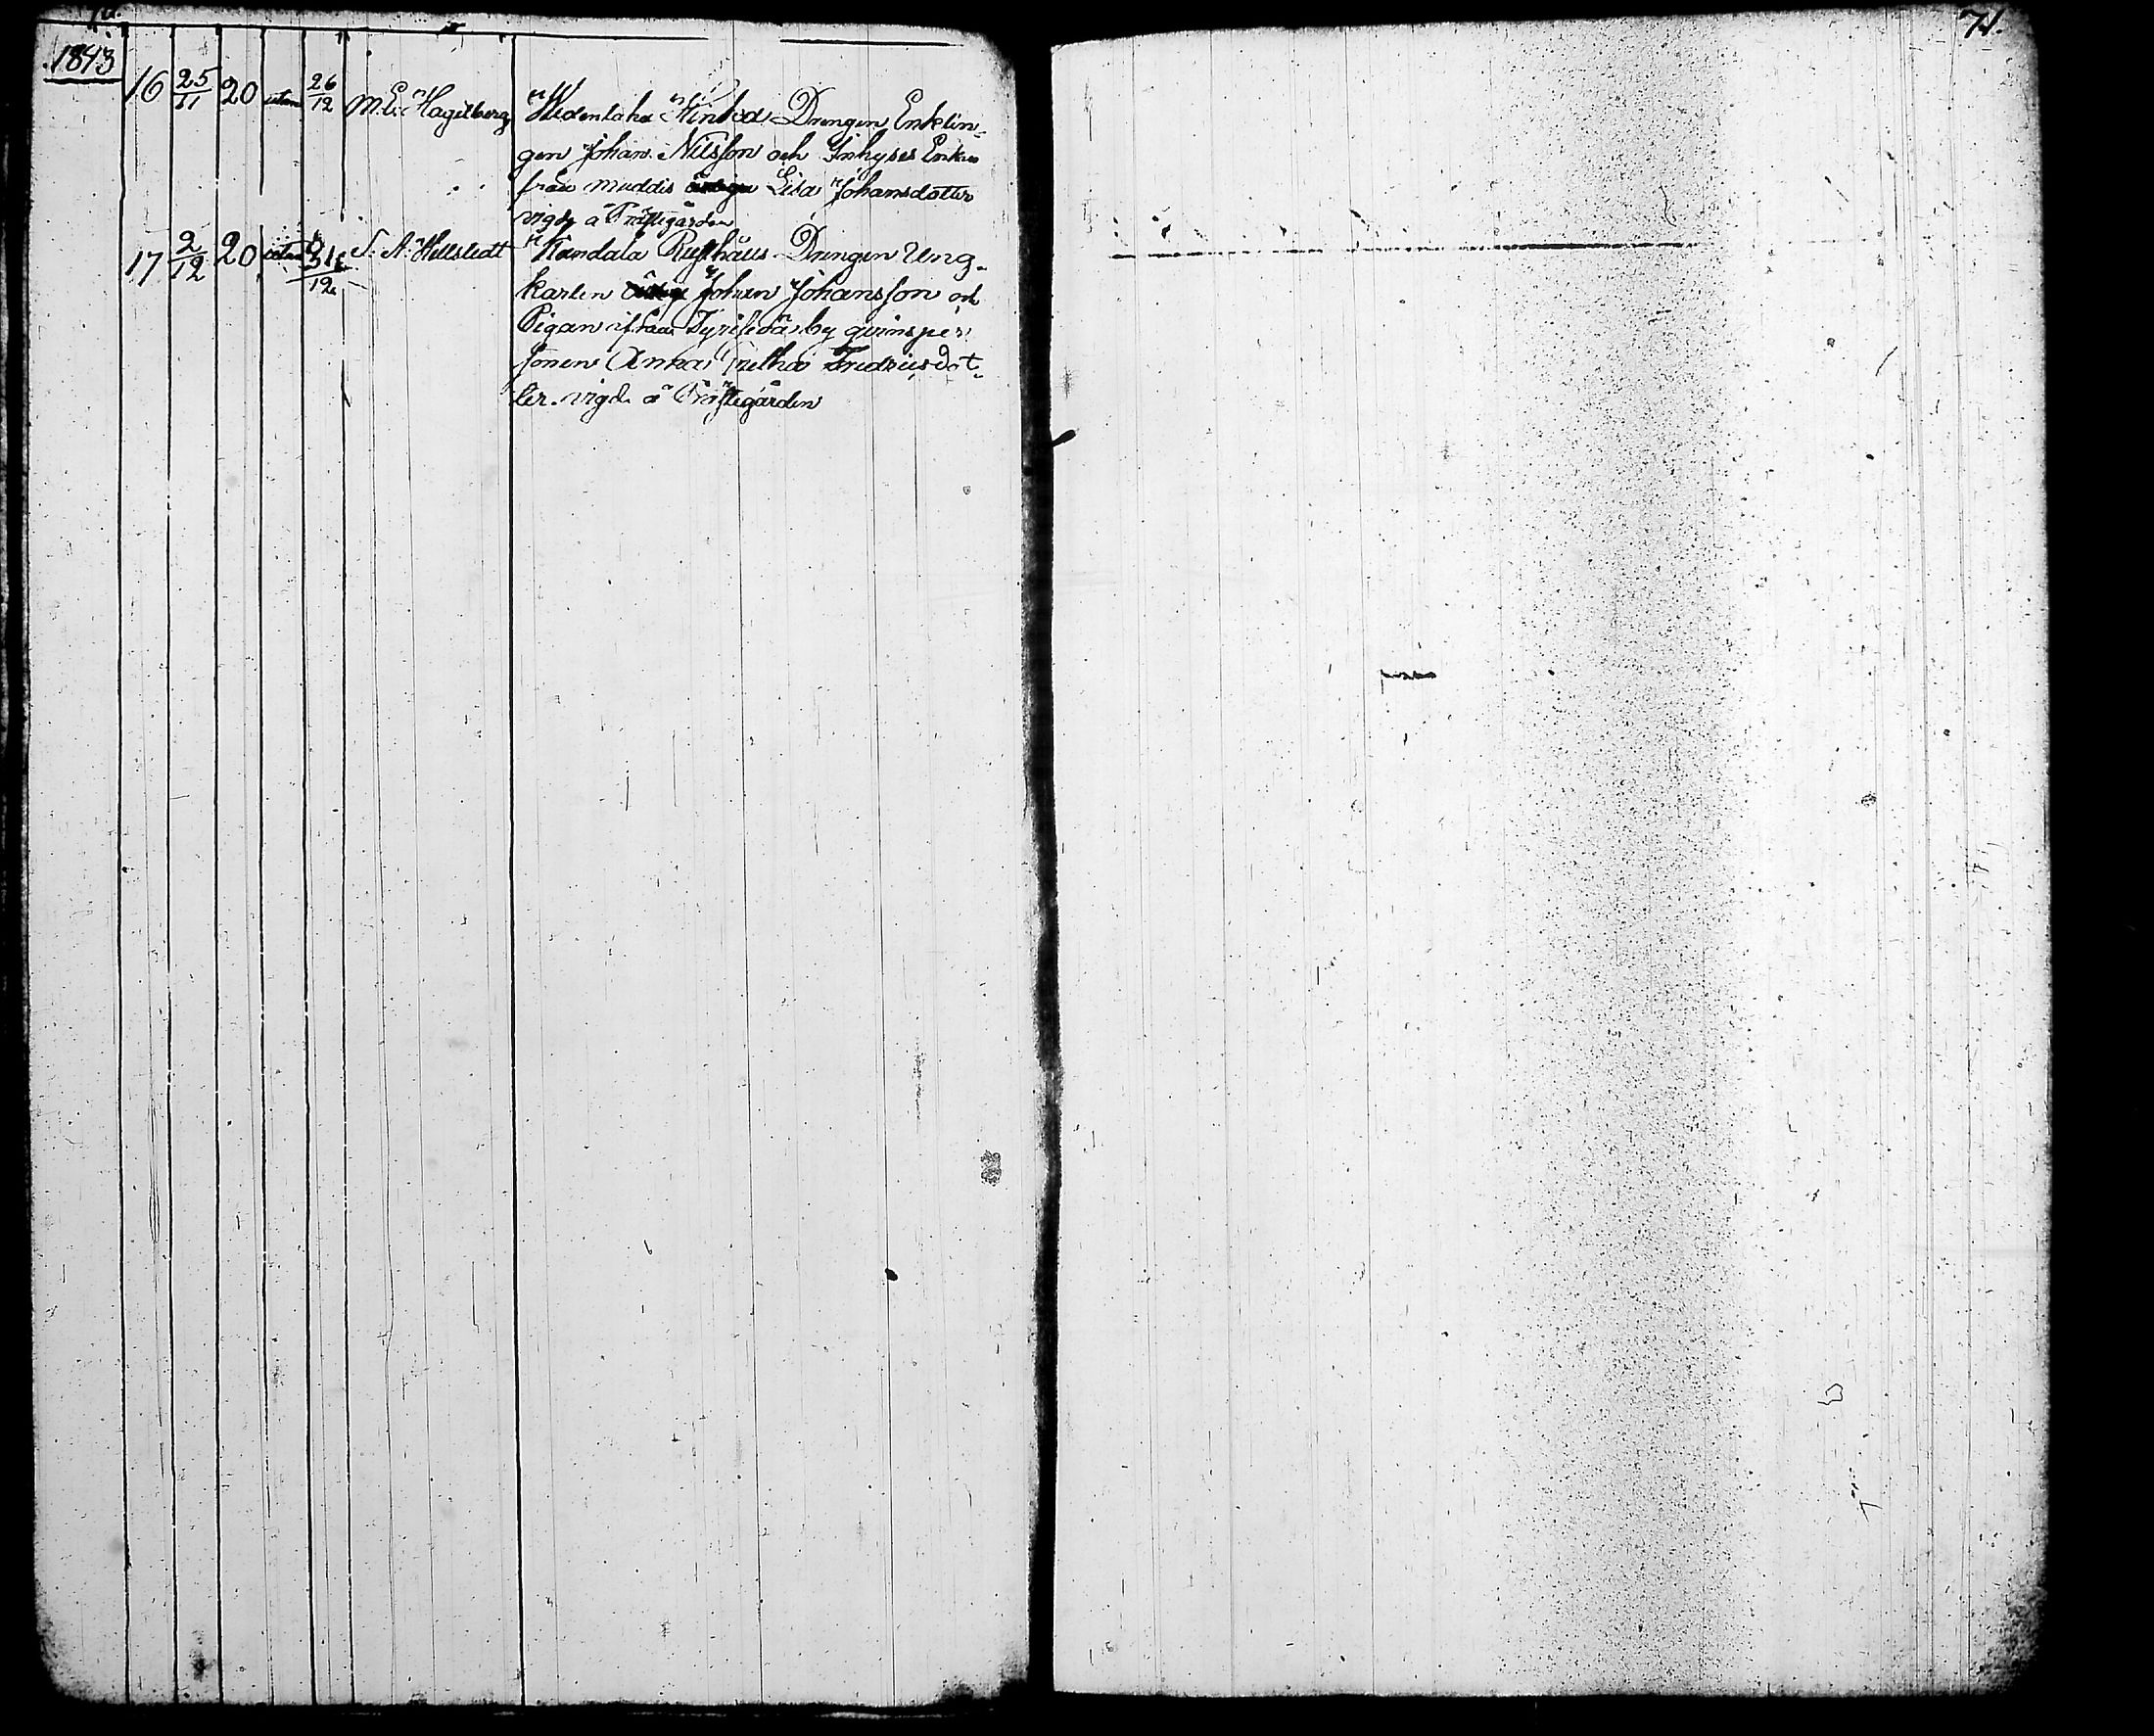 71.
1843
16 25/11 20 utan 26/12 M. E. Hagelberg Hedenlaka Hinkoa Drengen Enklin-
gen Johan Nilsson och Inhyses Enkan
från muddis Lisa Johansdotter
vigde å Prästegården
17 2/12 20 utan 31/12 S. A. Hellstedt Kandala Rusthåls Drengen Ung-
karlen Johan Johansson och
Pigan ifrån by qvinsper-
sonen Anna Gretha Fredricsdot-
ter. vigde å Prästegården